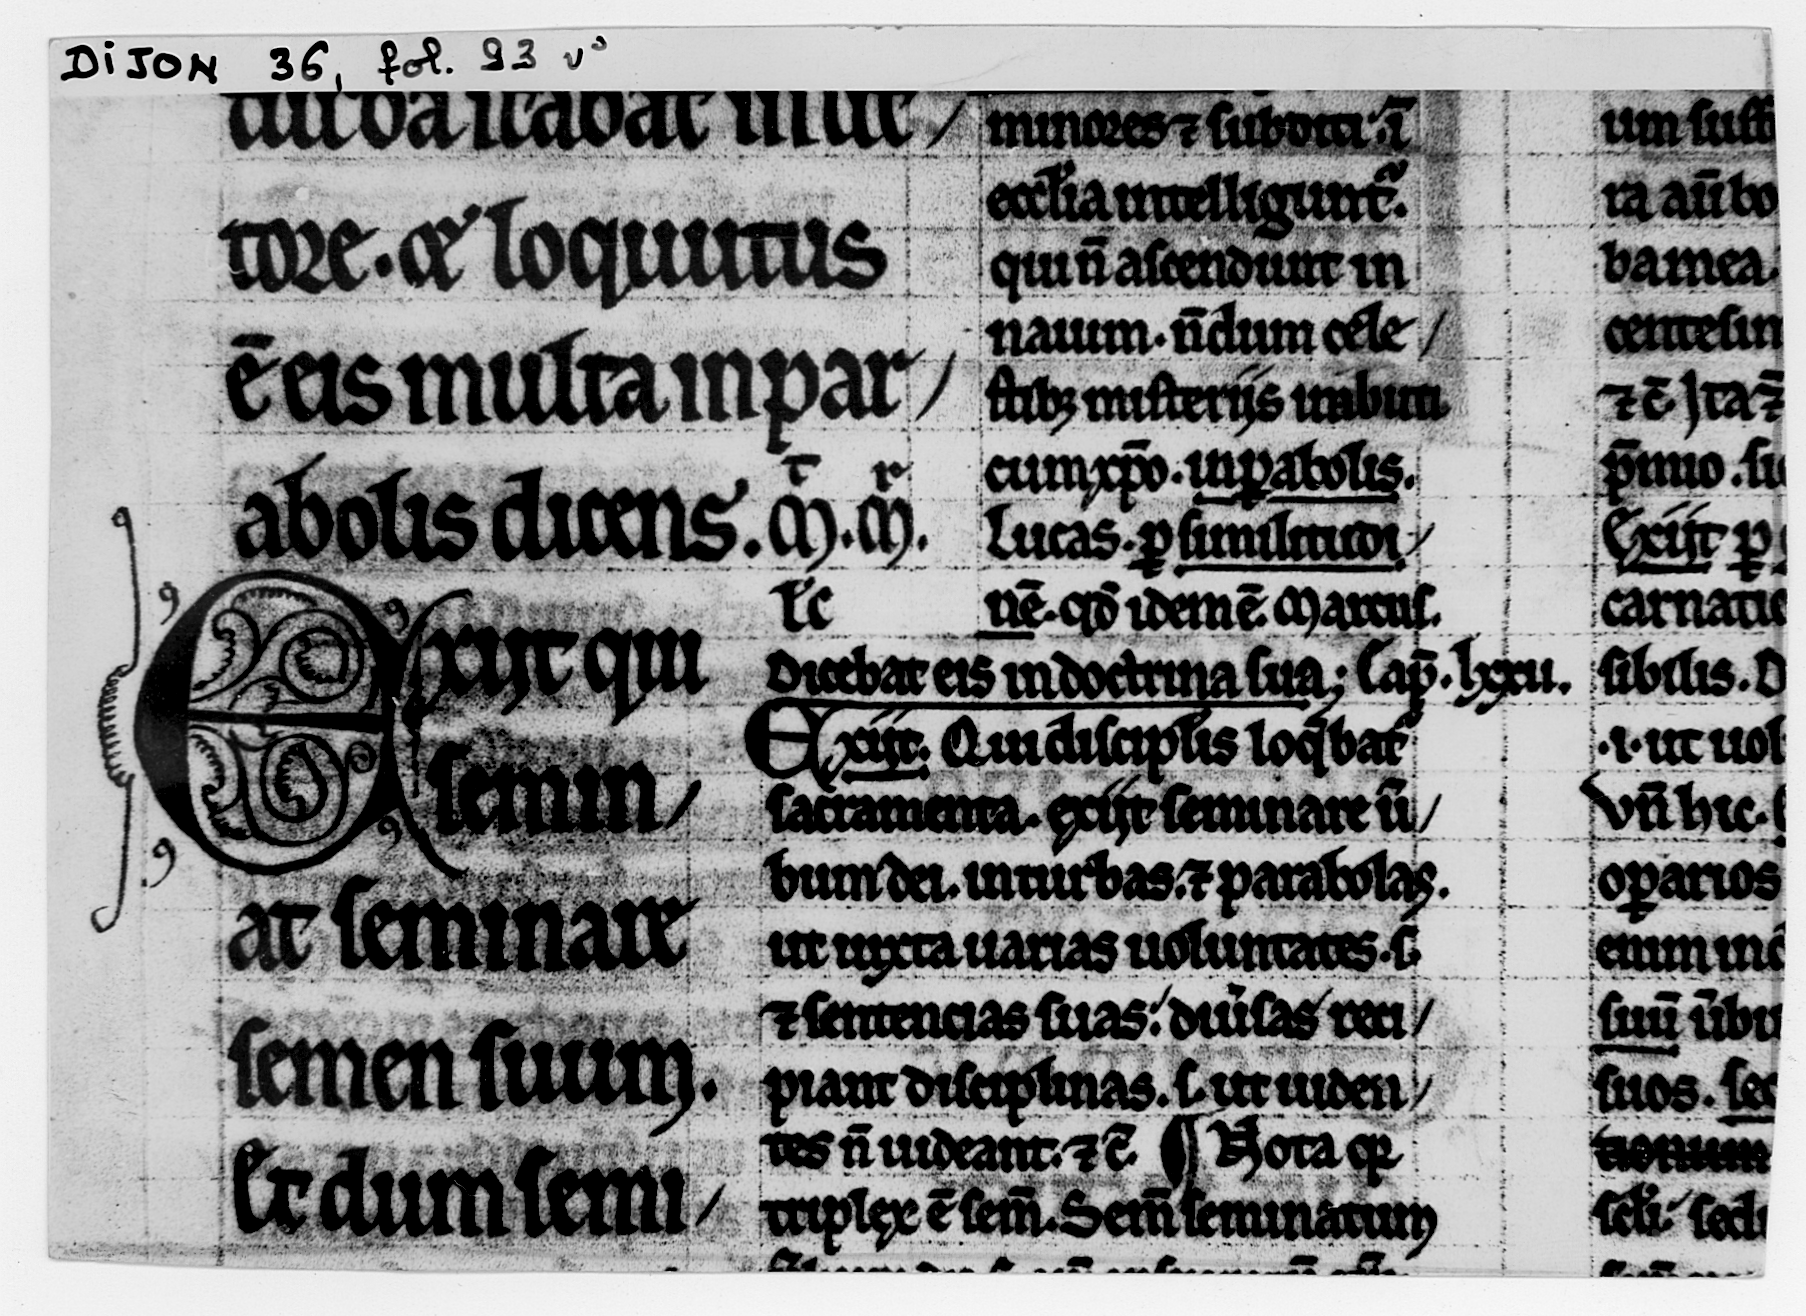 DiJON 36, fol. 93 v°
turba stabat in lit/
tore. et loquutus
ē eis multa in par/
abolis dicens. M̄. Mͬ.
lͨc
Exijt qui
semin/
at seminare
semen suum.
Et dum semi/
minores ⁊ subditi. ī
eccl'ia intelligunt᷑.
qui n̄ ascendunt in
nauim. n̄dum cele/
stibꝫ misterijs imbuti
cum xp̄o. in ꝑabolis.
Lucas. ꝑ similitudi/
nē. qđ idem ē. Marcus.
Dicebat eis in doctrina sua; Cap̄. lxxii.
Exijt. Qui discipl'is loq̄bat᷑
sacramenta. exijt seminare ū/
bum dei. in turbas. ⁊ parabolas.
ut iuxta uarias uoluntates. s.
⁊ sentencias suas. diu'sas reci/
piant disciplinas. s. ut uiden/
tes n̄ uideant. ⁊ c̄. ¶ Nota qꝫ
triplex ē sem̄. Sem̄ seminatum
um suff
ra aūbo
bamea.
centesim
⁊ c̄. Ita ⁊
p̄mio. su
Exijt ꝑ
carnatio
sibilis. D
.i. ut uol
Vn̄ hic.
oꝑarios
enim
suū ūbu
suos. sec
tionum
scl'i. sed